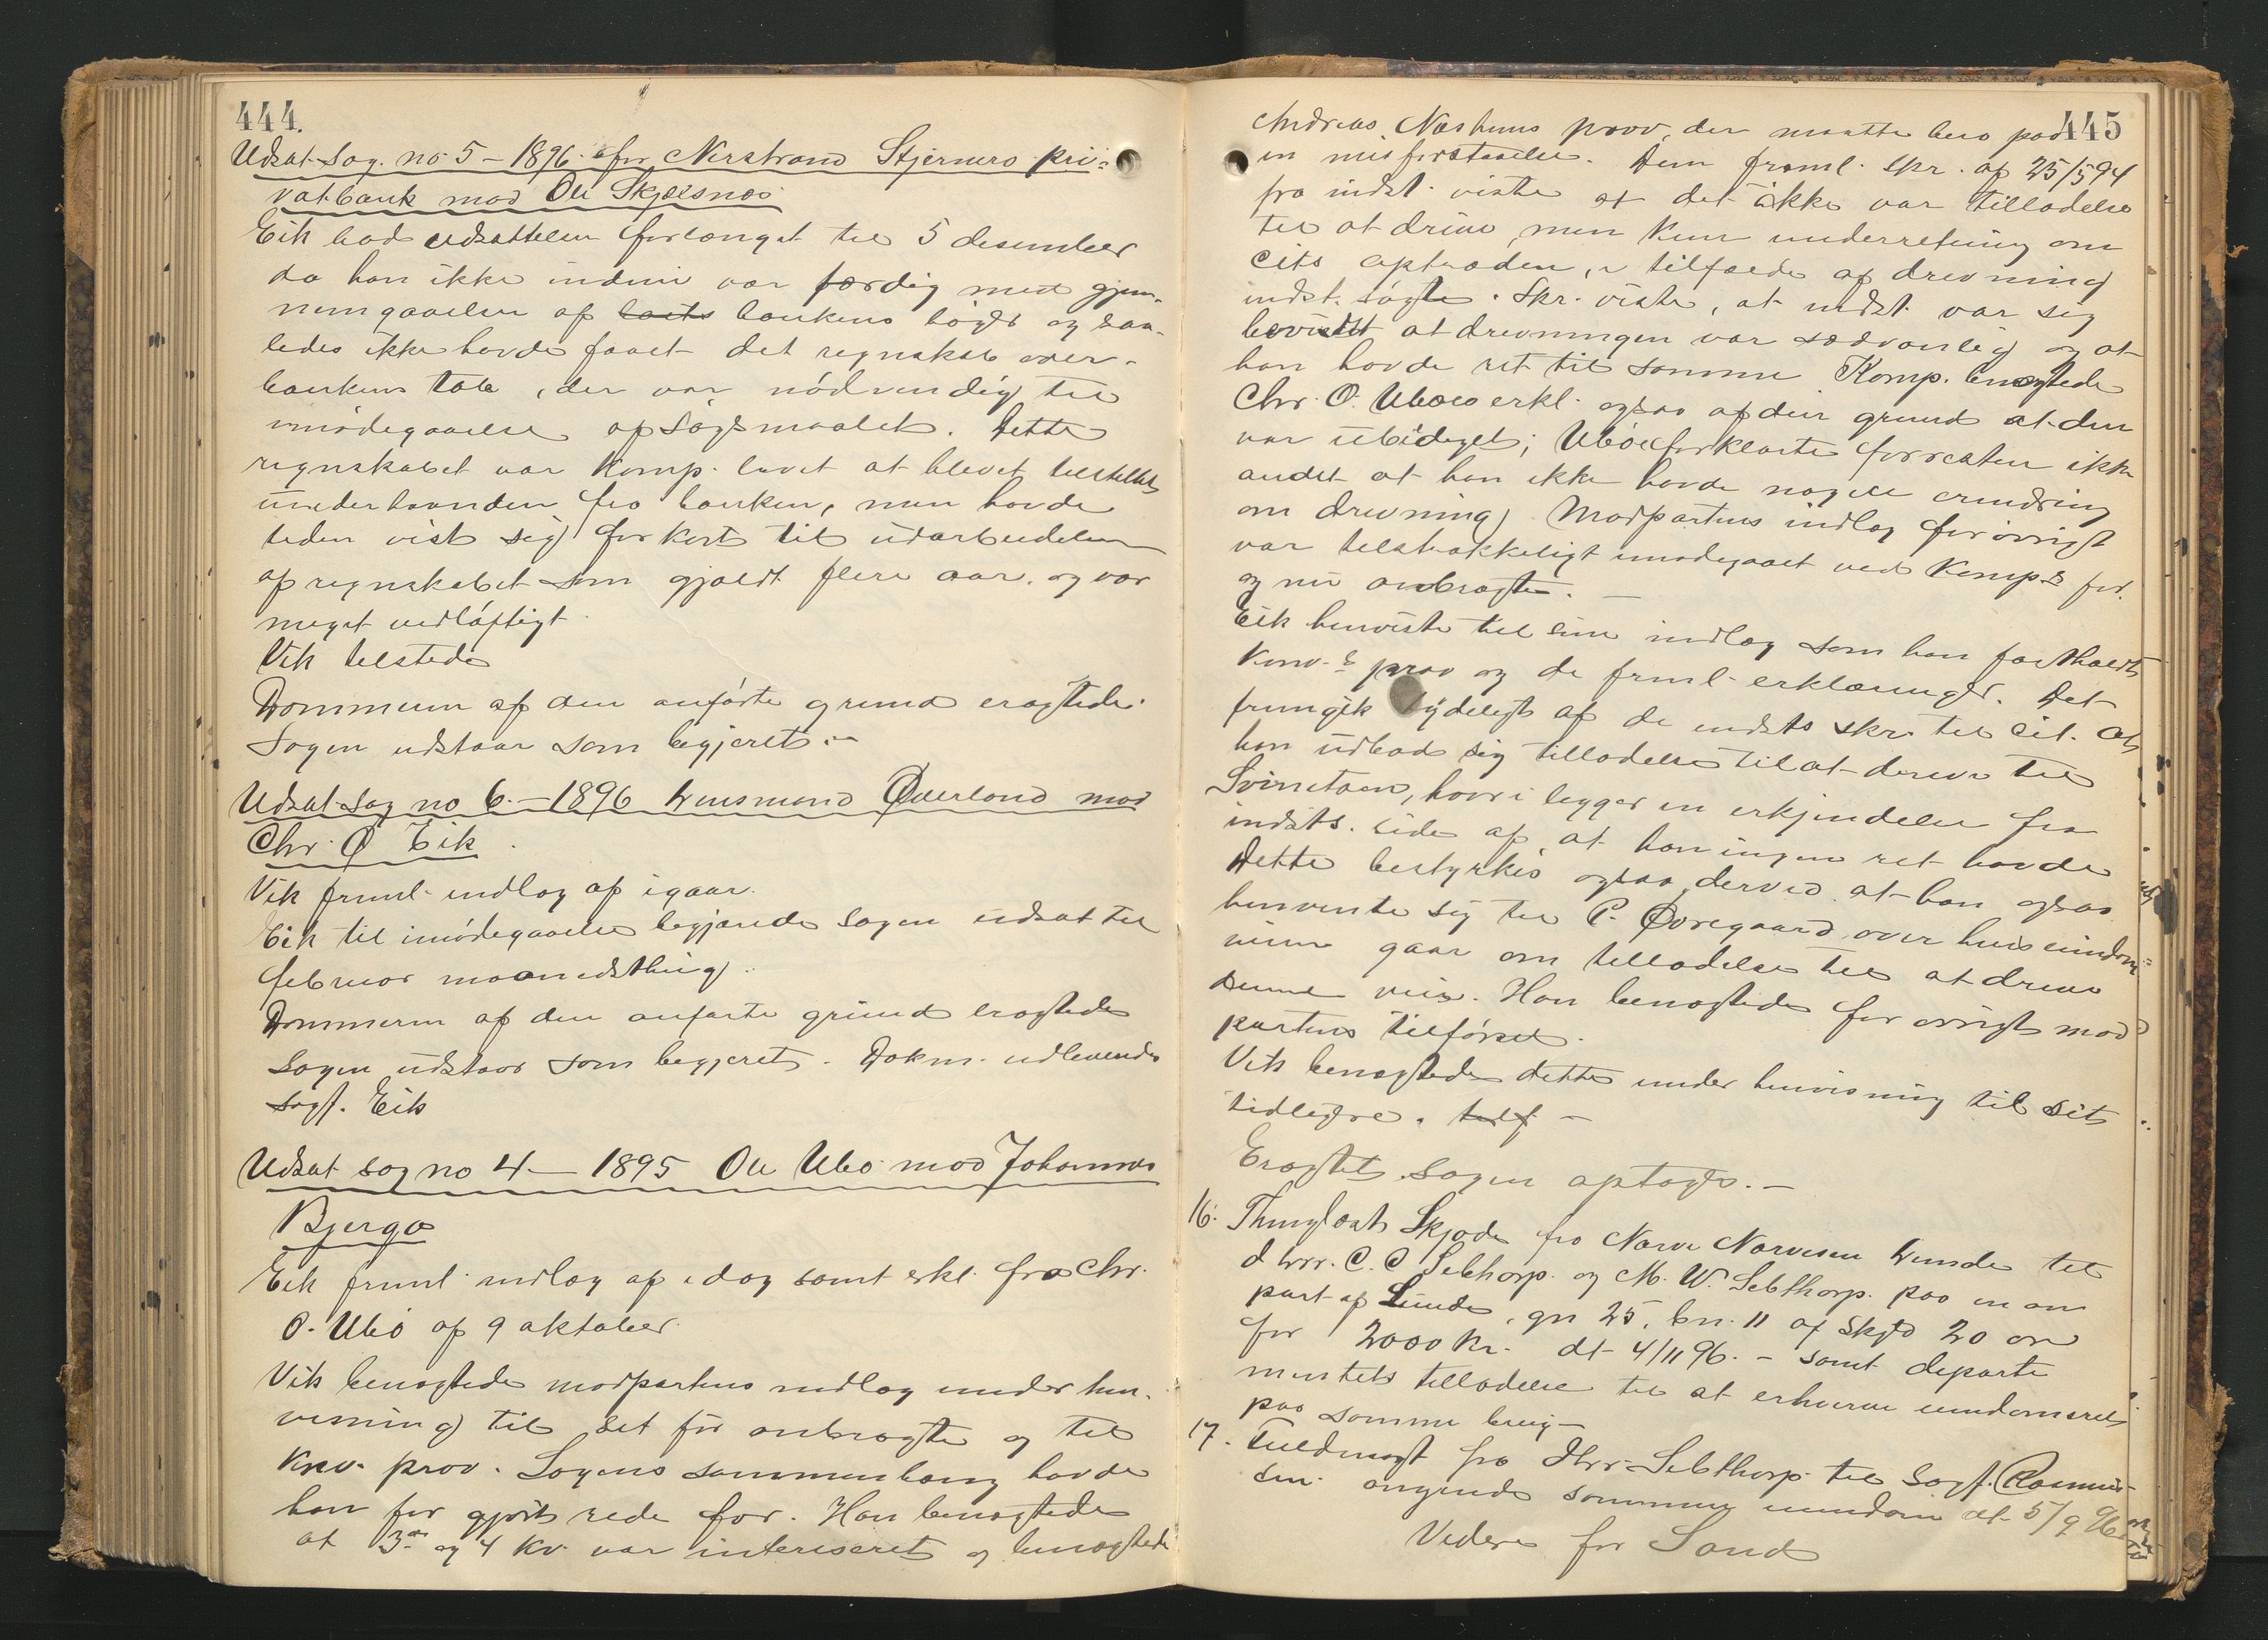 444.
Udsat Sag. no 5 – 1896 for Nerstrand Stjerneró pri-
vatbank mod Ole Skjelsnæs
Eik bad udsættelsen forlænget til 5 desember
da han ikke endnu var færdig med gjen-
nemgaaelse af bankens bøger og saa-
ledes ikke havde faaet det regnskab over
bankens tab, der var nødvendig til
imødegaaelse af søgsmaalet. Dette
regnskabet var Komp. lovet at blevet tilstillet
underhaanden fra banken, men havde
tiden vist sig for kort til udarbeidelsen
af regnskabet som gjaldt flere aar, og var
meget vidløftigt
Vik tilstede
Dommeren af den anførte grund eragtede:
Sagen udstaar som begjæret.–
Udsat Sag no 6.–1896 Lensmand Øverland mod
Chr. O Eik
Vik freml. indlæg af igaar.
Eik til imødegaaelse begjærede sagen udsat til
februar maanedsthing.
Dommeren af den anførte grund eragtede
Sagen udstaar som begjæret. Dokm. udlevendes
Sagf. Eik
Udsat sag no 4 – 1895 Ole Ubø mod Johannes
Bjerga
Eik freml. indlæg af idag samt erkl. fra Chr.
O. Ubø af 9 oktober.
Vik benægtede modpartens indlæg under hen-
visning til sit før anbragte og til
Krv. prov. Sagens sammenhæng havde
han før gjort rede for. Han benægtede
at 3die og 4 Kv. var interiseret og benægtede
445
Andreas Næshuns prov, der maatte bero paa
en misforstaaelse. Den freml. skr. af 25/5 94
fra indst. viste at det ikke var tilladelse
til at drive, men kun underretning om
cits optræden, i tilfælde af drevning
indst. søgte. Skr. viste, at indst. var sig
bevidst at drevningen var sædvanlig og at
han havde ret til samme. Komp. benægtede
Chr. O. Ubøes erkl. ogsaa af den grund at den
var ubeediget; Ubø forklarte forresten ikke
andet at han ikke havde nogen erindring
om drevning. Modpartens indlæg forøvrigt
var tilstrækkeligt imødegaaet ved Komp.s før
og nu anbragte. –
Eik henviste til sine indlæg som han fastholdt
Kinv.s prov og de freml. erklæringer. Det
fremgik tydeligt af de indsts skr. til Cit. at
han udbad sig tilladelse til at drive til
Svinetaen, hvori legger en erkjendelse fra
indsts. side af, at han ingen ret havde
Dette bestyrkes ogsaa derved at han ogsaa
henvendte sig til P. Øvregaard over hvis eiendom
veien gaar om tilladelse til at drive
denne vei. Han benægtede forøvrigt mod
partens tilførsel.
Vik benægtede dette under henvisning til sit
tidligere. –
Eragtet Sagen optages. –
16. Thinglæst Skjøde fra Narve Narvesen Lunde til
d'hrr. C. O Sebthorp. og M. W. Sebthorp. paa en an
part af Lunde, gn 25, bn. 11 af Skyld 20 øre
for 2000 kr. dt 4/11 96. – samt departe
mentets tilladelse til at erhverve eiendomsret
paa samme brug –
17. Fuldmagt fra Hrr. Sebthorp til Sagf. Rasmus-
sen angaaende samme eiendom dt 5/9 96
Videre for Sand